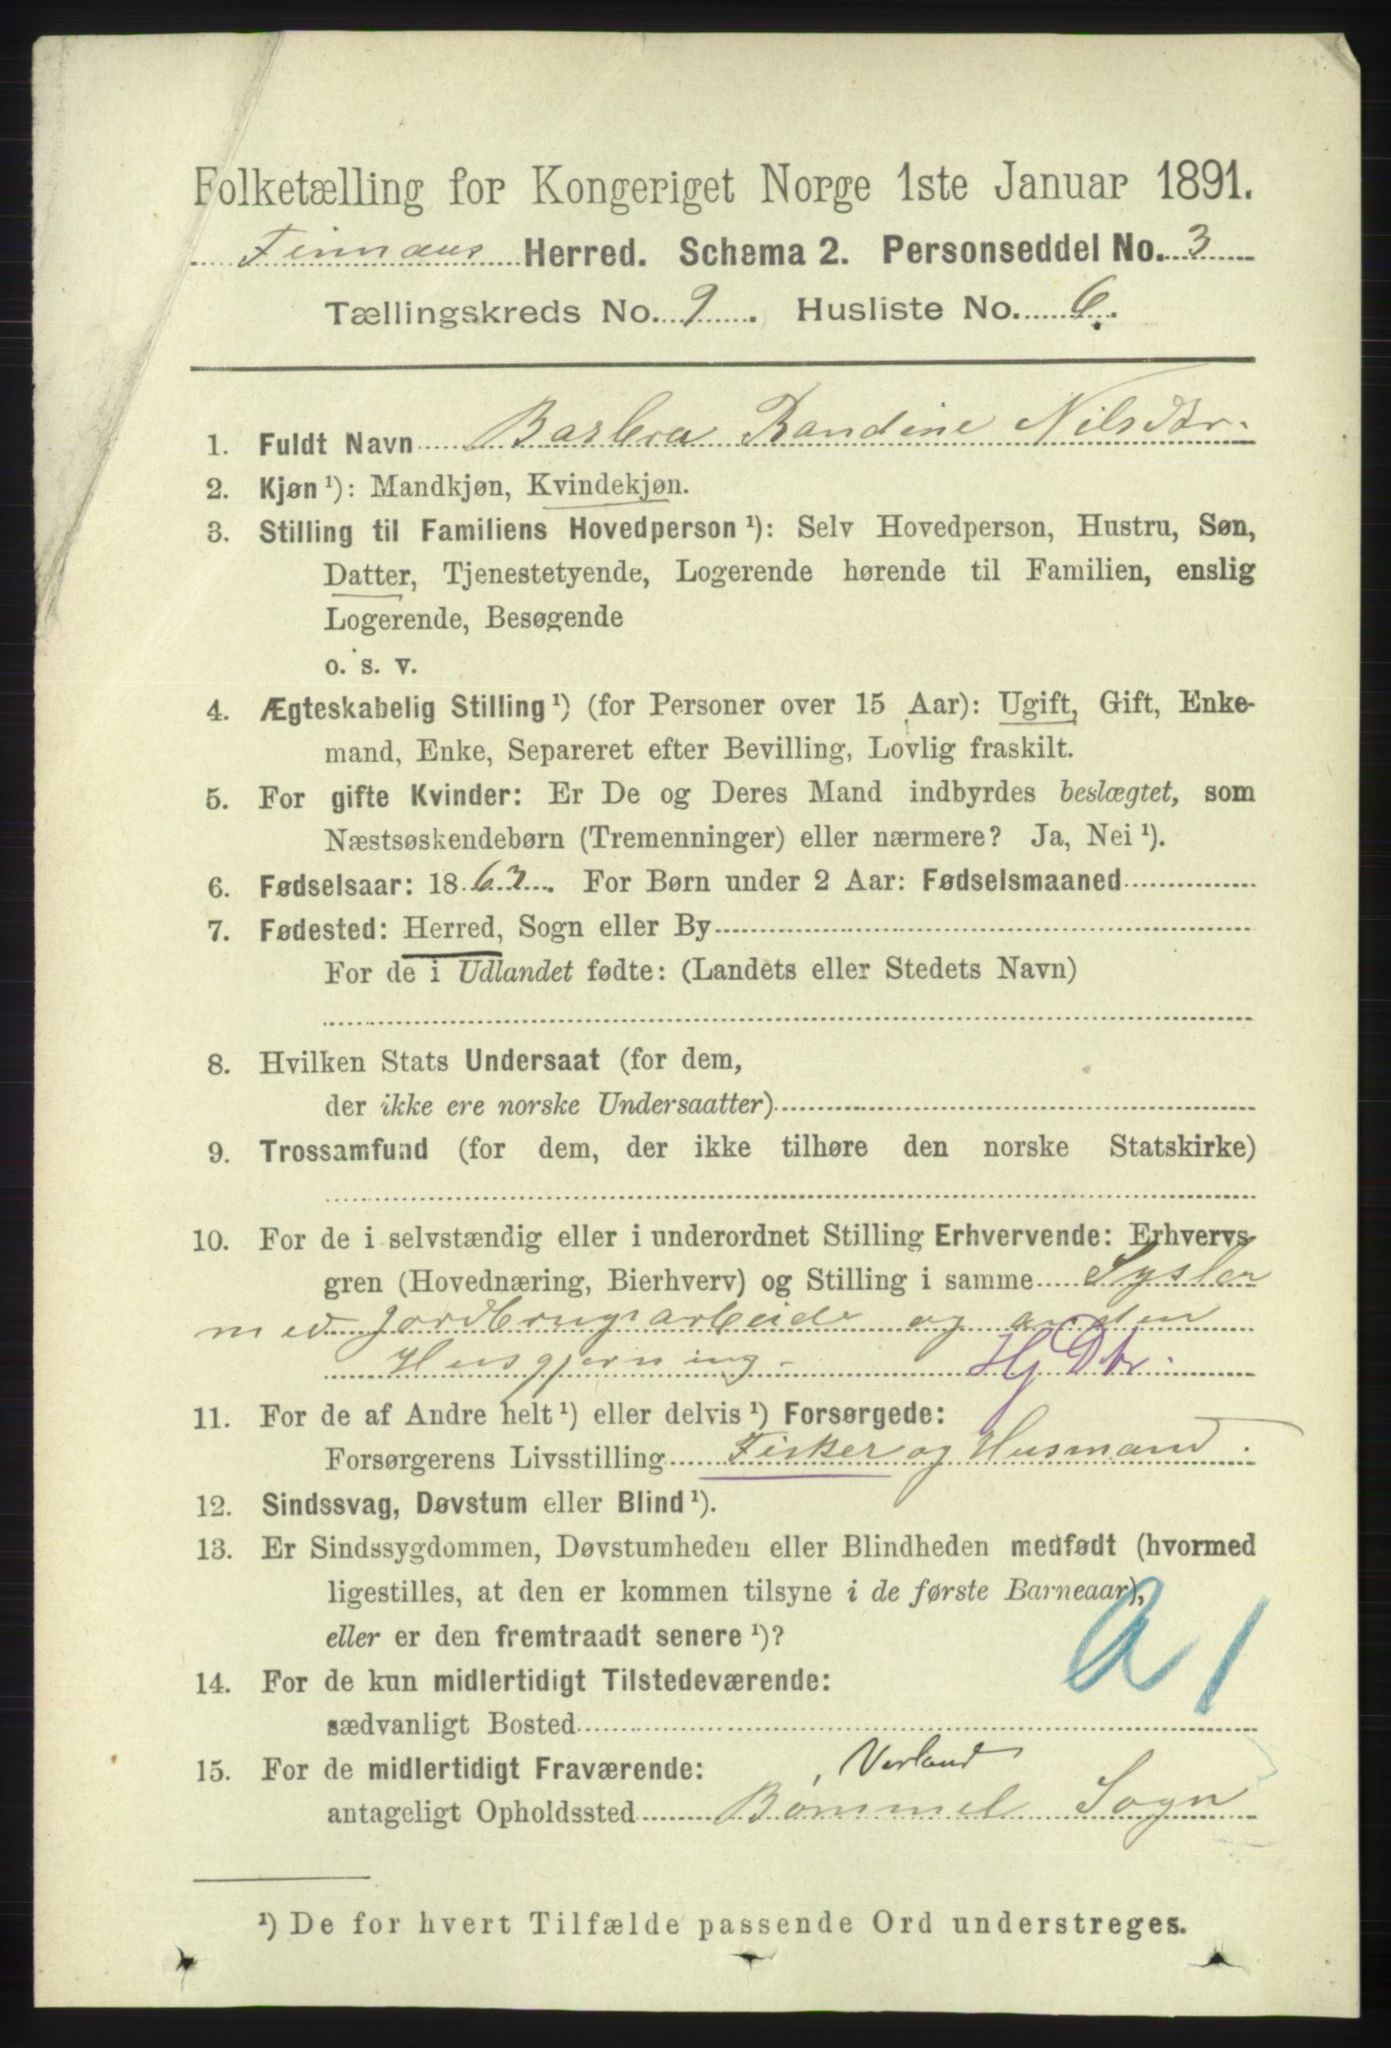 Folketælling for Kongeriget Norge 1ste Januar 1891.
Finnaas Herred. Schema 2. Personseddel No. 3
Tællingskreds No. 9. Husliste No. 6.
1. Fuldt Navn Barbra Randine Nilsdtr.
2. Kjøn ¹): Mandkjøn, Kvindekjøn.
3. Stilling til Familiens Hovedperson ¹): Selv Hovedperson, Hustru, Søn,
Datter, Tjenestetyende, Logerende hørende til Familien, enslig
Logerende, Besøgende
o. s. v.
4. Ægteskabelig Stilling ¹) (for Personer over 15 Aar): Ugift, Gift, Enke-
mand, Enke, Separeret efter Bevilling, Lovlig fraskilt.
5. For gifte Kvinder: Er De og Deres Mand indbyrdes beslægtet, som
Næstsøskendebørn (Tremenninger) eller nærmere? Ja, Nei ¹).
6. Fødselsaar: 18 63. For Børn under 2 Aar: Fødselsmaaned
7. Fødested: Herred, Sogn eller By
For de i Udlandet fødte: (Landets eller Stedets Navn)
8. Hvilken Stats Undersaat (for dem,
der ikke ere norske Undersaatter)
9. Trossamfund (for dem, der ikke tilhøre den norske Statskirke)
10. For de i selvstændig eller i underordnet Stilling Erhvervende: Erhvervs-
gren (Hovednæring, Bierhverv) og Stilling i samme Sysler
med Jordbrugsarbeide og anden
Husgjerning - Hj Dtr.
11. For de af Andre helt ¹) eller delvis ¹) Forsørgede:
Forsørgerens Livsstilling Fisker og Husmand.
12. Sindssvag, Døvstum eller Blind ¹).
13. Er Sindssygdommen, Døvstumheden eller Blindheden medfødt (hvormed
ligestilles, at den er kommen tilsyne i de første Barneaar),
eller er den fremtraadt senere ¹)?
a 1
14. For de kun midlertidigt Tilstedeværende:
sædvanligt Bosted
15. For de midlertidigt Fraværende:
antageligt Opholdssted Bømmel Sogn
¹) De for hvert Tilfælde passende Ord understreges.